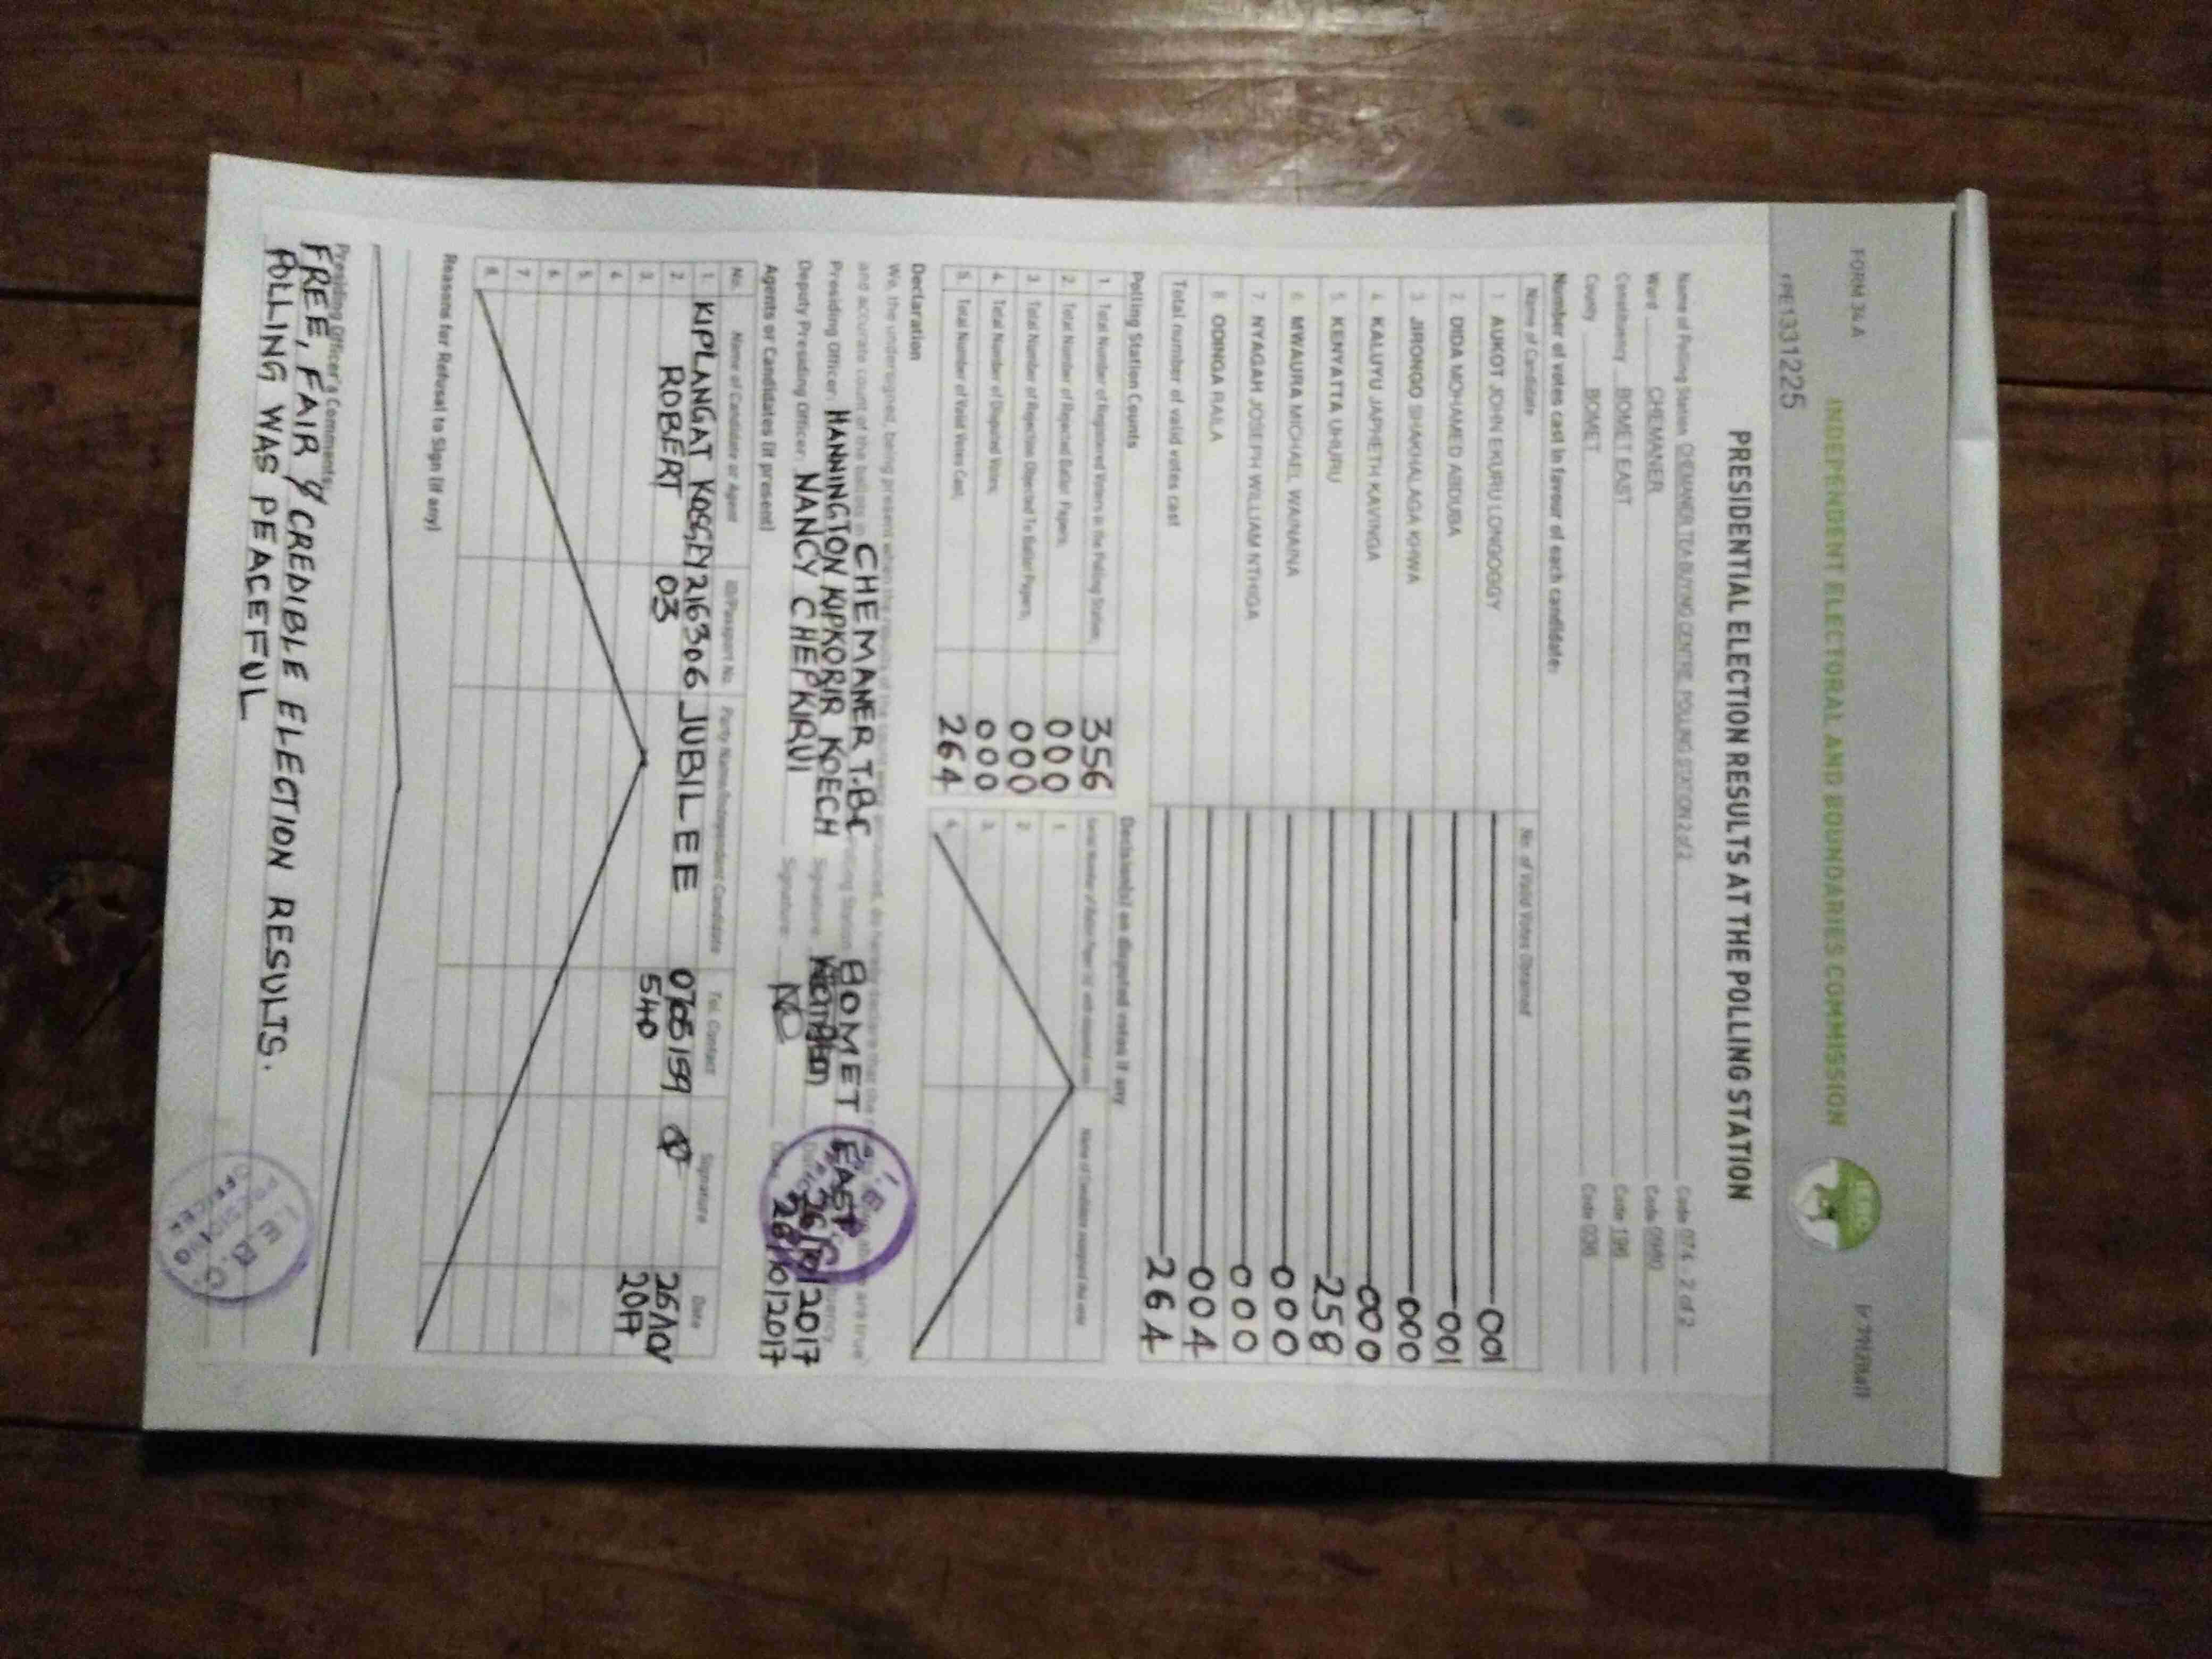 FORM 34 A
INDEPENDENT ELECTORAL AND BOUNDARIES COMMISSION
IEBC
PRE1331225
PRESIDENTIAL ELECTION RESULTS AT THE POLLING STATION
Name of Polling Station CHEMANER TEA BUYING CENTRE POLLING STATION 2 of 2 Code 074 2 of 2
Ward CHEMANER Code 0980
Constituency BOMET EAST Code 196
County BOMET Code 036
Number of votes cast in favour of each candidate:
Name of Candidate No. of Valid Votes Obtained
1. AUKOT JOHN EKURU LONGOGGY 001
2. DIDA MOHAMED ABDUBA 001
3. JIRONGO SHAKHALAGA KHWA 000
4. KALUYU JAPHETH KAVINGA 000
5. KENYATTA UHURU 258
6. MWAURA MICHAEL WAINAINA 000
7. NYAGAH JOSEPH WILLIAM NTHIGA 000
8. ODINGA RAILA 004
Total number of valid votes cast 264
Polling Station Counts
1. Total Number of Registered Voters in the Polling Station; 356
2. Total Number of Rejected Ballot Papers; 000
3. Total Number of Rejection Objected To Ballot Papers; 000
4. Total Number of Disputed Votes; 000
5. Total Number of Valid Votes Cast; 264
Decision(s) on disputed votes if any
1.
2.
3.
4.
Declaration
We, the undersigned, being present when the results of the
and accurate count of the ballots in CHEMANER T.B.C BOMET EAST
Presiding Officer: HANNINGTON KIPKORIR KOECH Signature 26/10/2017
Deputy Presiding Officer: NANCY CHEPKIRUI Signature: 26/10/2017
Agents or Candidates (if present)
No. Name of Candidate or Agent ID/Passport No. Party Name/Independent Candidate Tel. Contact Signature Date
1. KIPLANGAT KOSGEY 216306 JUBILEE 26/10/
2. ROBERT 03 540 2017
3.
4.
5.
6.
7.
8.
Reasons for Refusal to Sign (if any)
Presiding Officer's Comments:
FREE, FAIR & CREDIBLE ELECTION RESULTS.
POLLING WAS PEACEFUL
I.E.B.C.
PRESIDING
OFFICER